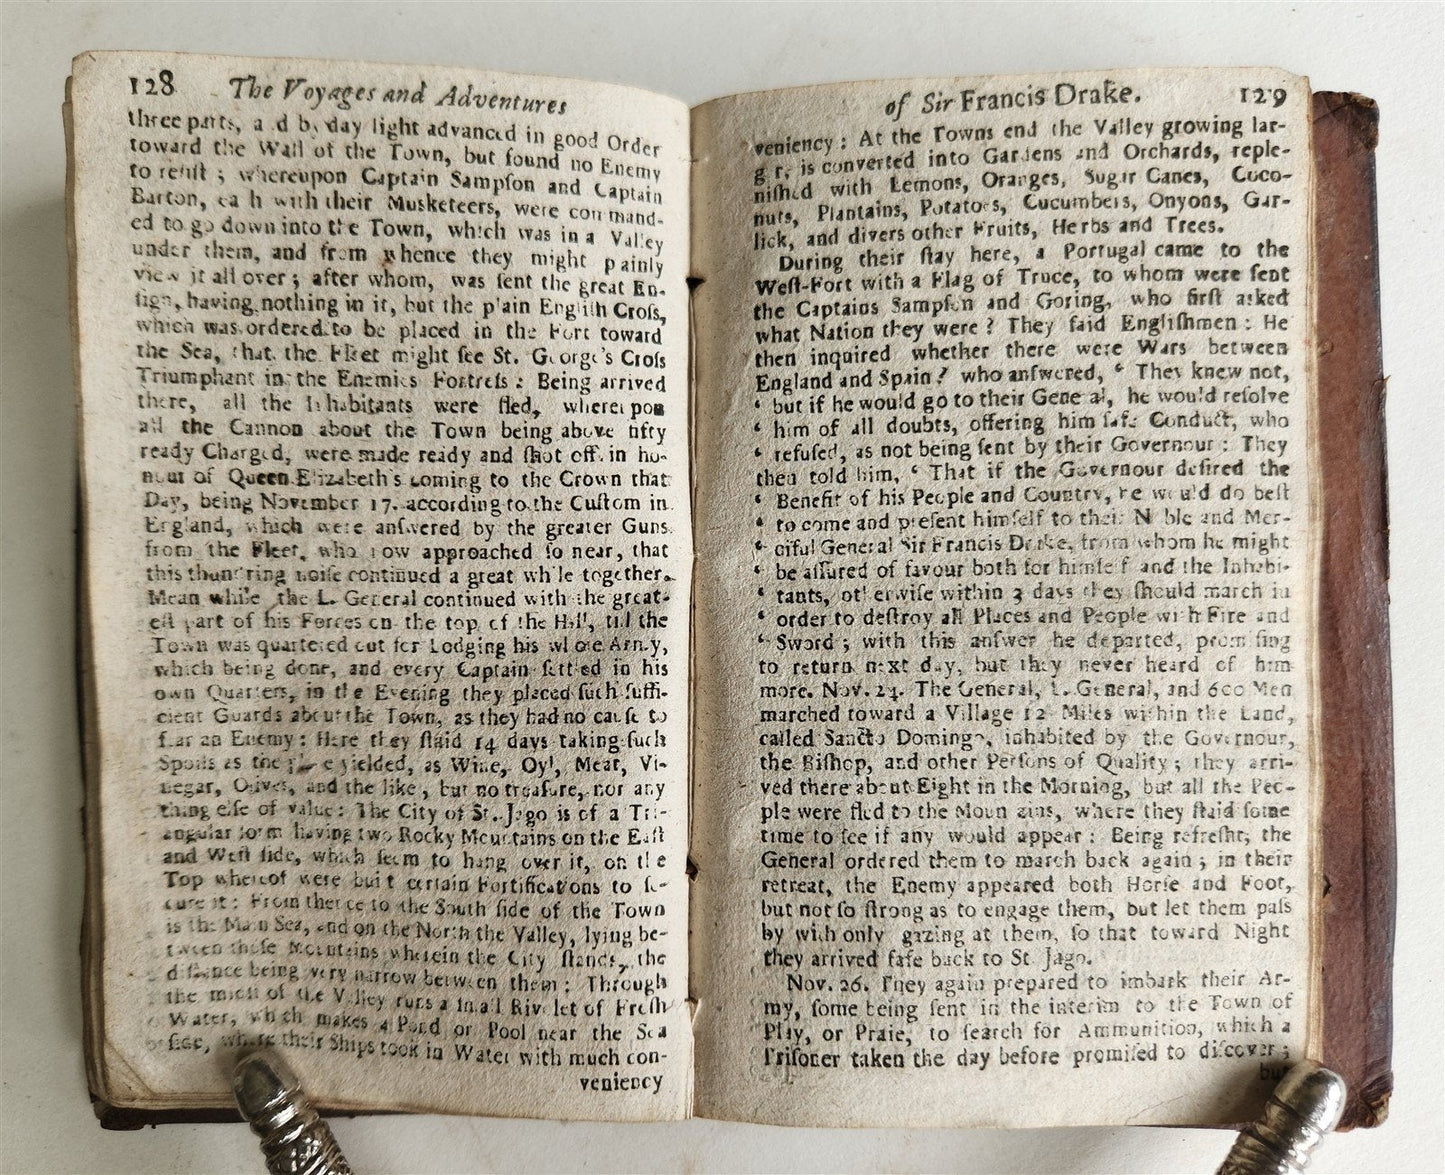 128 The Voyages and Adventures
three parts, a d by day light advanced in good Order
toward the Wall of the Town, but found no Enemy
to resist ; whereupon Captain Sampſon and Captain
Barton, ea h with their Musketeers, were command-
ed to go down into the Town, which was in a Valley
under them, and from whence they might plainly
view it all over ; after whom, was ſent the great En-
ſign, having nothing in it, but the plain Engliſh Croſs,
which was ordered to be placed in the Fort toward
the Sea, that the Fleet might ſee St. George's Croſs
Triumphant in the Enemies Fortreſs : Being arrived
there, all the Inhabitants were fled, whereupon
all the Cannon about the Town being above fifty
ready Charged, were made ready and ſhot off in ho-
nour of Queen Elizabeth's coming to the Crown that
Day, being November 17. according to the Cuſtom in
England, which were anſwered by the greater Guns
from the Fleet, who now approached ſo near, that
this thundring noiſe continued a great while together.
Mean while the L. General continued with the great-
eſt part of his Forces on the top of the Hill, till the
Town was quartered out for Lodging his whole Army,
which being done, and every Captain ſettled in his
own Quarters, in the Evening they placed ſuch ſuffi-
cient Guards about the Town, as they had no cauſe to
fear an Enemy : Here they ſtaid 14 days taking ſuch
Spoils as the place yielded, as Wine, Oyl, Meat, Vi-
negar, Olives, and the like, but no treaſure, nor any
thing elſe of value : The City of St. Jago is of a Tri-
angular form having two Rocky Mountains on the Eaſt
and Weſt ſide, which ſeem to hang over it, on the
Top whereof were built certain Fortifications to ſe-
cure it : From thence to the South ſide of the Town
is the Main Sea, and on the North the Valley, lying be-
tween thoſe Mountains wherein the City ſtands, the
diſtance being very narrow between them : Through
the midſt of the Valley runs a ſmall Rivulet of Freſh
Water, which makes a Pond or Pool near the Sea
ſide, where their Ships took in Water with much con-
veniency
of Sir Francis Drake. 129
veniency : At the Towns end the Valley growing lar-
ger, is converted into Gardens and Orchards, reple-
niſhed with Lemons, Oranges, Sugar Canes, Coco-
nuts, Plantains, Potatoes, Cucumbers, Onyons, Gar-
lick, and divers other Fruits, Herbs and Trees.
During their ſtay here, a Portugal came to the
Weſt-Fort with a Flag of Truce, to whom were ſent
the Captains Sampſon and Goring, who firſt asked
what Nation they were ? They ſaid Engliſhmen : He
then inquired whether there were Wars between
England and Spain ? who anſwered, ‘ They knew not,
‘ but if he would go to their General, he would reſolve
‘ him of all doubts, offering him ſafe Conduct, who
‘ refuſed, as not being ſent by their Governour : They
then told him, ‘ That if the Governour deſired the
‘ Benefit of his People and Country, he would do beſt
‘ to come and preſent himſelf to their Noble and Mer-
‘ ciful General Sir Francis Drake, from whom he might
‘ be aſſured of favour both for himſelf and the Inhabi-
‘ tants, otherwiſe within 3 days they ſhould march in
‘ order to deſtroy all Places and People with Fire and
‘ Sword ; with this anſwer he departed, promiſing
to return next day, but they never heard of him
more. Nov. 24. The General, L. General, and 600 Men
marched toward a Village 12 Miles within the Land,
called Sancto Domingo, inhabited by the Governour,
the Biſhop, and other Perſons of Quality ; they arri-
ved there about Eight in the Morning, but all the Peo-
ple were fled to the Mountains, where they ſtaid ſome
time to ſee if any would appear : Being refreſht, the
General ordered them to march back again ; in their
retreat, the Enemy appeared both Horſe and Foot,
but not ſo ſtrong as to engage them, but let them paſs
by with only gazing at them, ſo that toward Night
they arrived ſafe back to St Jago.
Nov. 26. They again prepared to imbark their Ar-
my, ſome being ſent in the interim to the Town of
Play, or Praie, to ſearch for Ammunition, which a
Priſoner taken the day before promiſed to diſcover ;
but